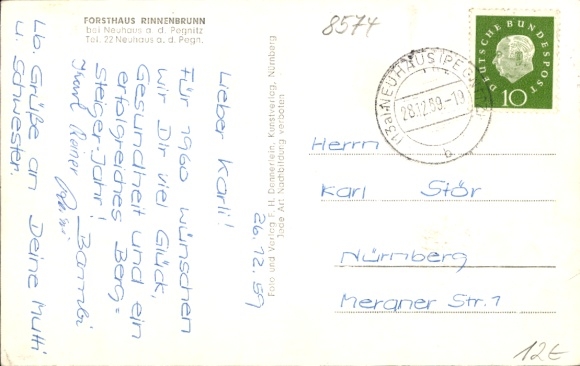 FORSTHAUS RINNENBRUNN
bei Neuhaus a. d. Pegnitz
Tel. 22 Neuhaus a. d. Pegn.
8574
26.12.59
Lieber Karli!
Für 1960 wünschen
wir Dir viel Glück,
Gesundheit und ein
erfolgreiches Berg=
steiger-Jahr!
Bambi
Reiner
Lb. Grüße an Deine Mutti
u. Schwester.
Foto und Verlag F. H. Dennerlein, Kunstverlag, Nürnberg
Jede Art Nachbildung verboten
(13a) NEUHAUS (PEGNITZ)
28.12.59-19
b
DEUTSCHE BUNDESPOST
10
Herrn
Karl Stör
Nürnberg
Meraner Str. 1
12€